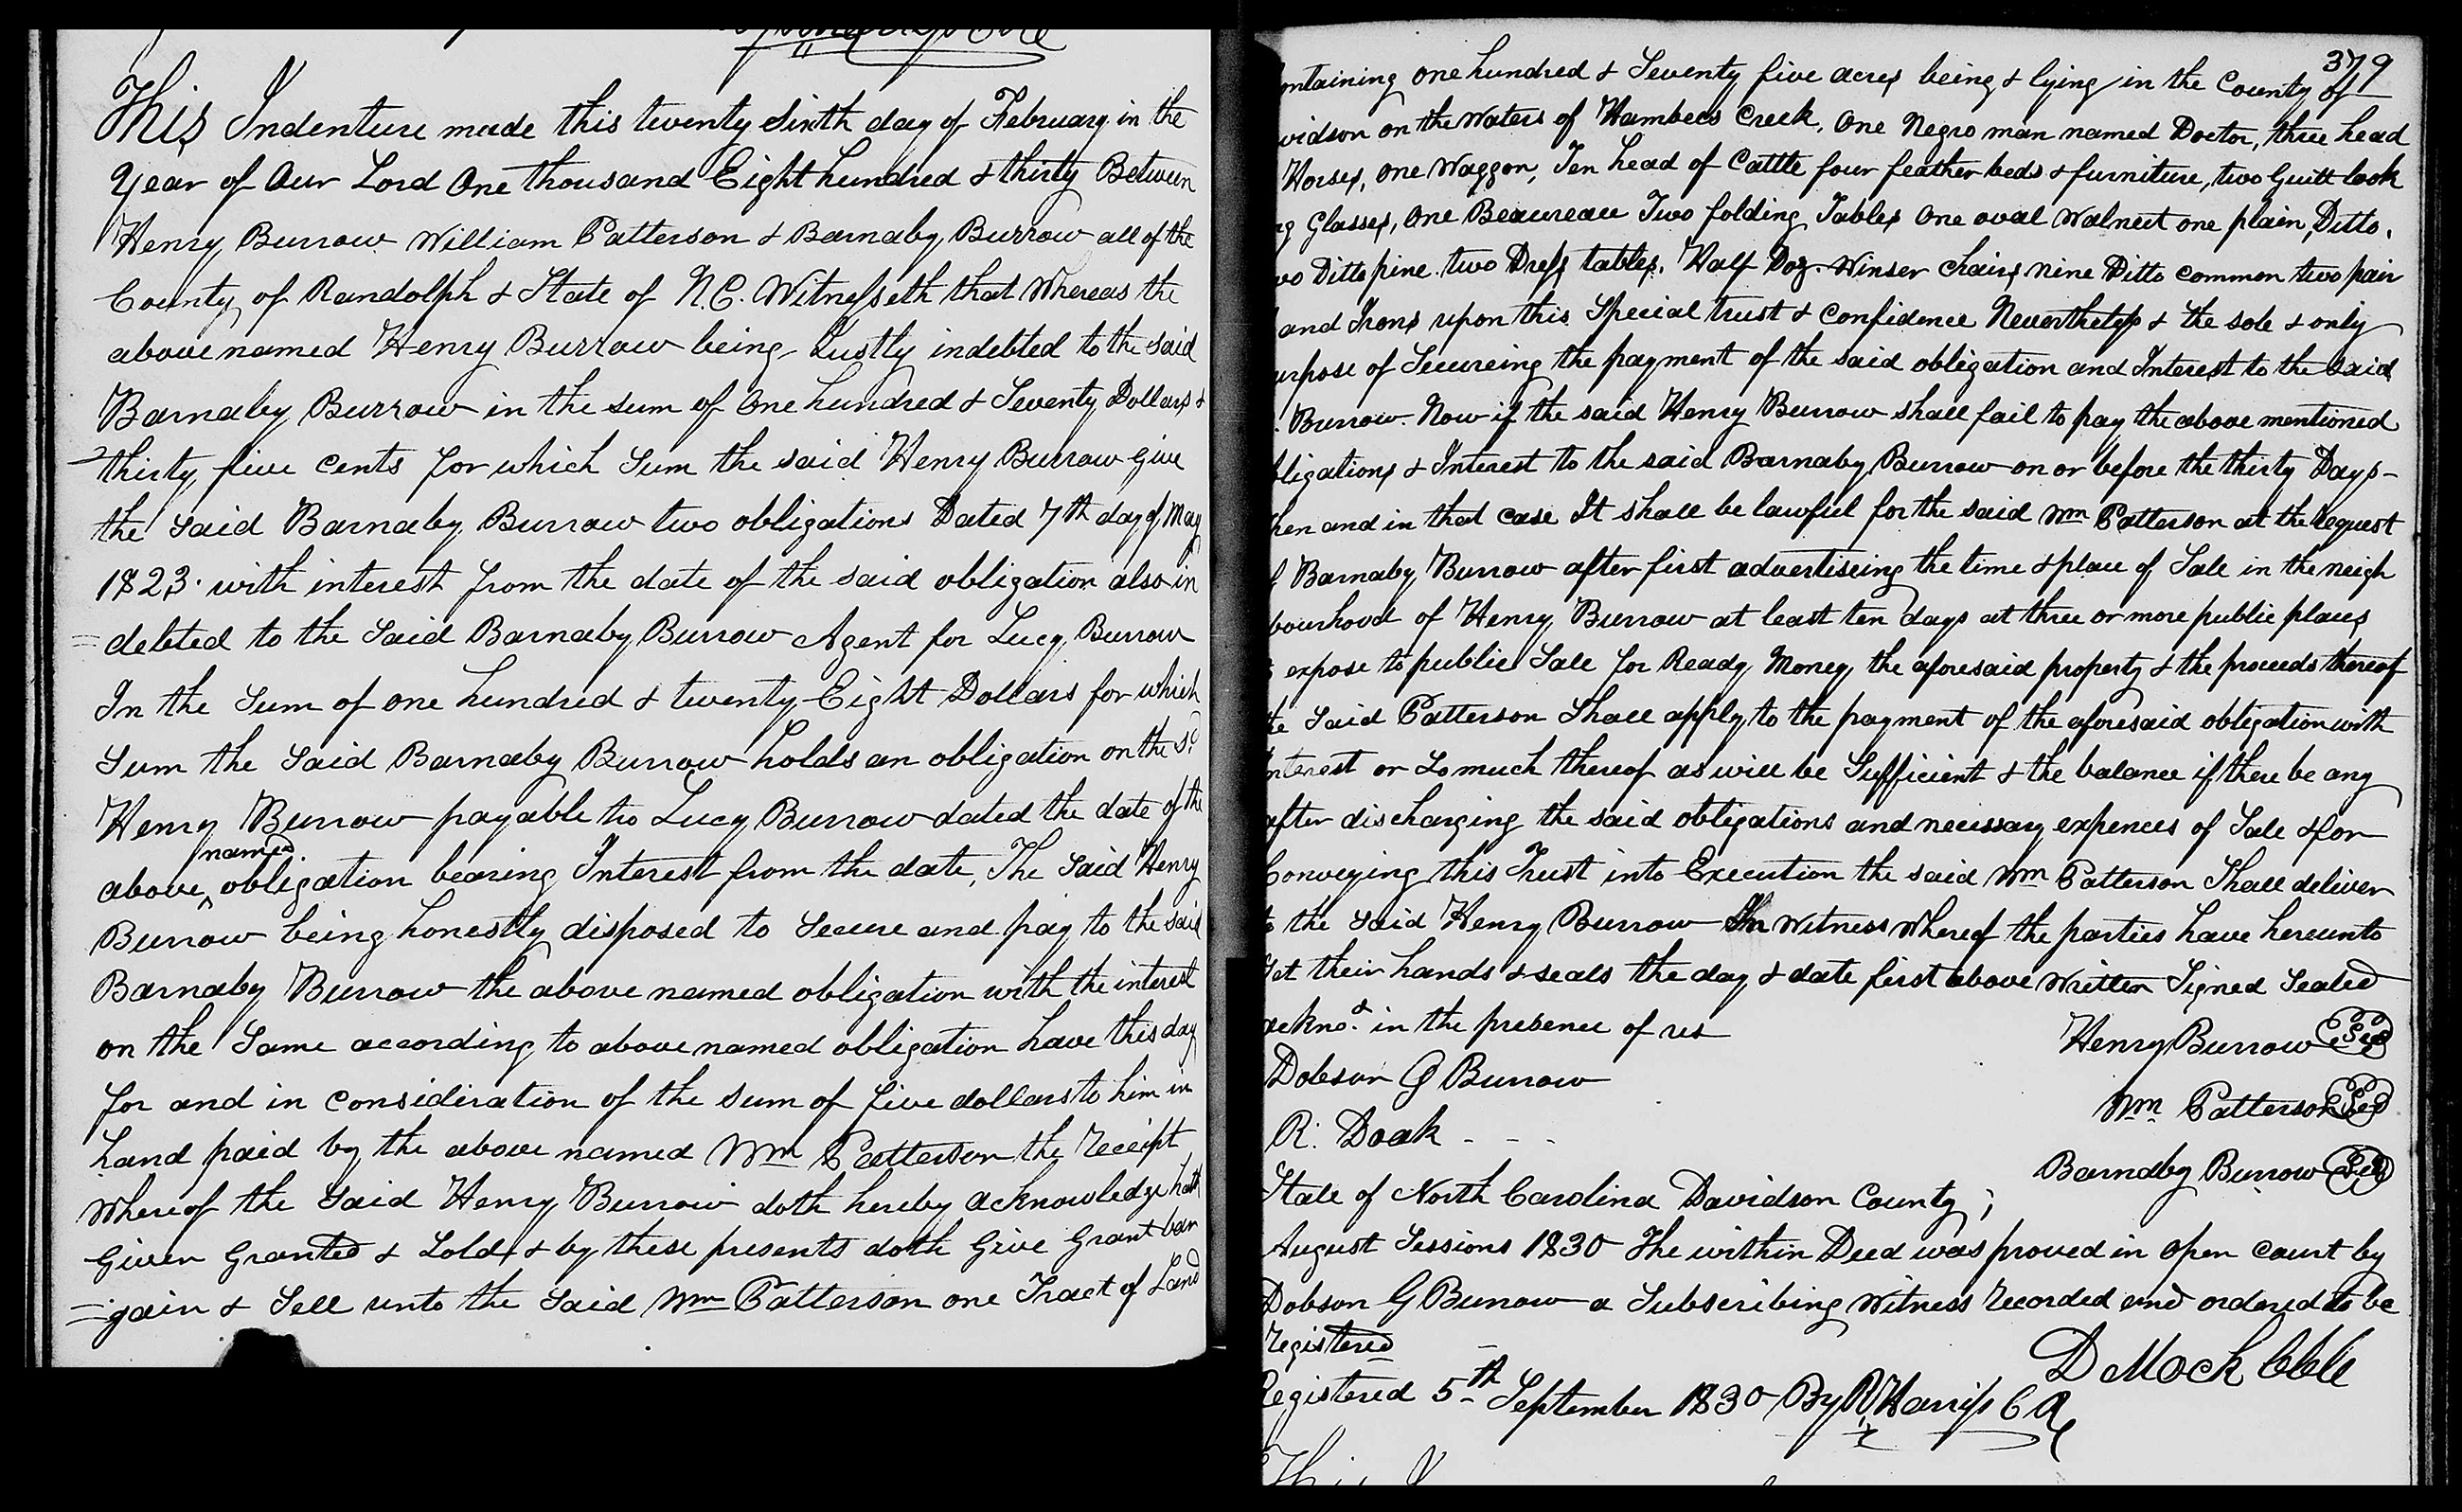 This Indenture made this twenty Sixth day of February in the
Year of Our Lord One thousand Eight hundred & thirty Between
Henry Burrow William Patterson & Barnaby Burrow all of the
County of Randolph & State of N.C. Witnesseth that Whereas the
above named Henry Burrow being Justly indebted to the said
Barnaby Burrow in the sum of One hundred & Seventy Dollars &
thirty five cents for which Sum the said Henry Burrow give
the said Barnaby Burrow two obligations Dated 7th day of May
1823. with interest from the date of the said obligation also in
=debted to the Said Barnaby Burrow Agent for Lucy Burrow
In the Sum of one hundred & twenty Eight Dollars for which
Sum the Said Barnaby Burrow holds an obligation on the sd
Henry Burrow payable to Lucy Burrow dated the date of the
above ^named obligation bearing Interest from the date, The Said Henry
Burrow being honestly disposed to Secure and pay to the said
Barnaby Burrow the above named obligation with the interest
on the Same according to above named obligation have this day
for and in consideration of the sum of five dollars to him in
hand paid by the above named Wm Patterson the receipt
Whereof the Said Henry Burrow doth hereby acknowledge hath
Given Granted & Sold, & by these presents doth Give Grant bar
=gain & Sell unto the Said Wm Patterson one Tract of Land
379
ontaining one hundred & Seventy five acres being & lying in the County of
vidson on the Waters of Hambees Creek, One Negro man named Doctor, three head
Horses, one Waggon, Ten head of Cattle four feather beds & furniture, two Guilt look
ng Glasses, One Beaureau Two folding Tables One oval Walnut one plain, Ditto,
wo Ditto pine two Dress tables, Half Doz. Winser chairs nine Ditto common two pair
and Irons upon this Special trust & confidence Nevertheless & the sole & only
urpose of Secureing the payment of the said obligation and Interest to the said
. Burrow. Now if the said Henry Burrow shall fail to pay the above mentioned
bligations & Interest to the said Barnaby Burrow on or before the thirty Days-
hen and in that case It shall be lawful for the said Wm Patterson at the request
f Barnaby Burrow after first advertiseing the time & place of Sale in the neigh
bourhood of Henry Burrow at least ten days at three or more public places
expose to public Sale for Ready Money the aforesaid property & the proceeds thereof
the Said Patterson Shall apply to the payment of the aforesaid obligation with
nterest or So much thereof as will be Sufficient & the balance if there be any
after discharging the said obligations and necessary expences of Sale & for
Conveying this Trust into Execution the said Wm Patterson Shall deliver
to the Said Henry Burrow In Witness Whereof the parties have hereunto
Set their hands & seals the day & date first above Written Signed Sealed
acknod in the presence of us
Henry Burrow Seal
Dobson G Burrow
Wm Patterson Seal
R. Doak - - -
Barnaby Burrow Seal
State of North Carolina Davidson County;
August Sessions 1830 The within Deed was proved in open court by
Dobson G Burrow a Subscribing Witness recorded and ordered to be
registered
D Mock Clk
Registered 5th September 1830 By R Harriss